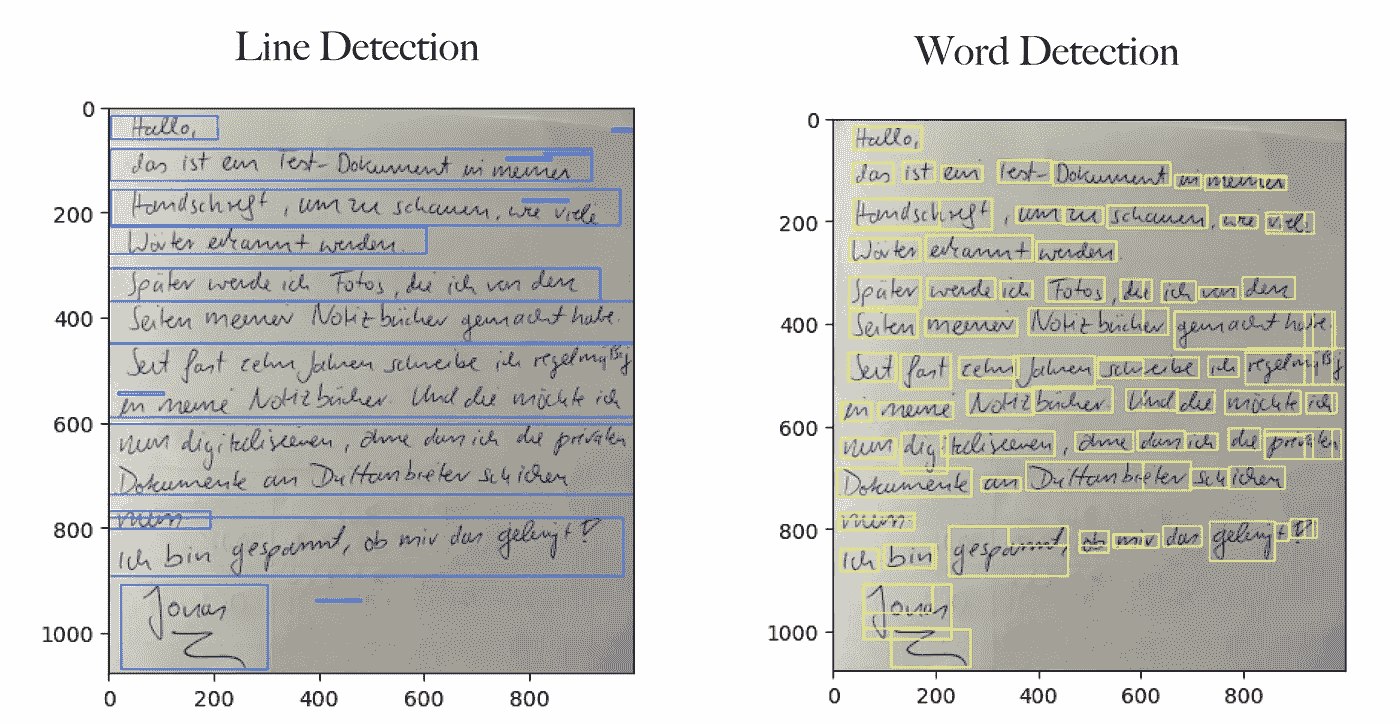 Line Detection
0
200
400
600
800
1000
Hallo,
das ist ein Test-Dokument in meiner
Handschrift, um zu schauen, wie viele
Wörter erkannt werden.
Später werde ich Fotos, die ich von den
Seiten meiner Notizbücher gemacht habe.
Seit fast zehn Jahren schreibe ich regelmäßig
in meine Notizbücher. Und die möchte ich
nun digitalisieren, ohne dass ich die privaten
Dokumente an Drittanbieter schicken
muss.
Ich bin gespannt, ob mir das gelingt!
Jonas
0 200 400 600 800
Word Detection
0
200
400
600
800
1000
Hallo,
das ist ein Test-Dokument in meiner
Handschrift, um zu schauen, wie viele
Wörter erkannt werden.
Später werde ich Fotos, die ich von den
Seiten meiner Notizbücher gemacht habe.
Seit fast zehn Jahren schreibe ich regelmäßig
in meine Notizbücher. Und die möchte ich
nun digitalisieren, ohne dass ich die privaten
Dokumente an Drittanbieter schicken
muss.
Ich bin gespannt, ob mir das gelingt!
Jonas
0 200 400 600 800